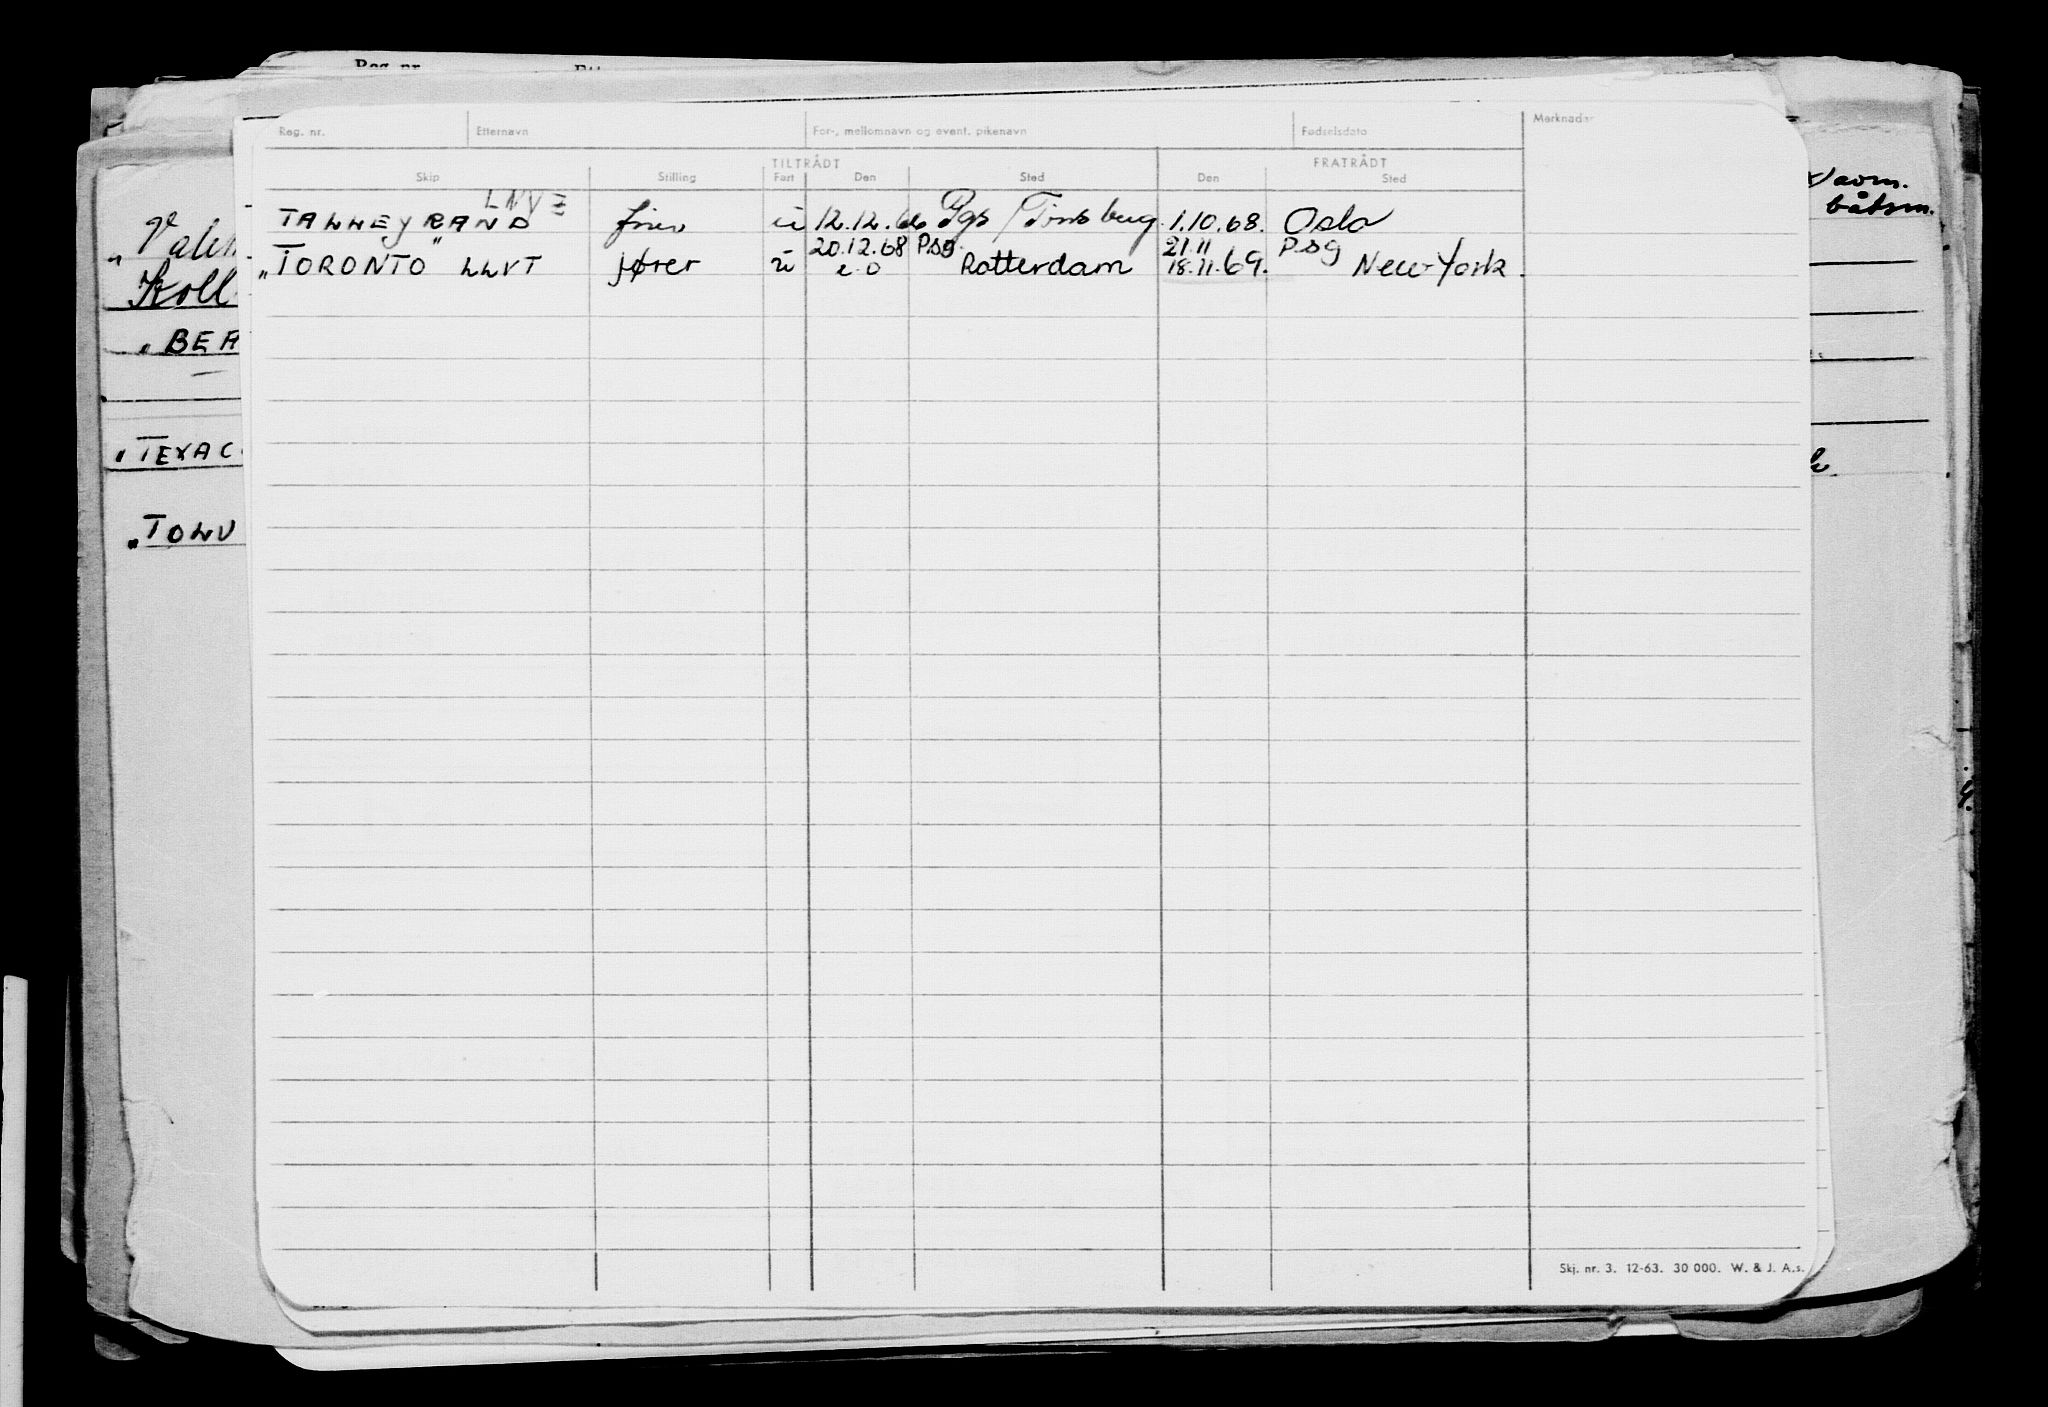 Reg. nr.
Reg. nr. Etternavn For-, mellomnavn og event. pikenavn Fødselsdato Merknader
TILTRÅDT FRATRÅDT
Skip Stilling Fart Den Sted Den Sted
LNVZ
TALLEYRAND fører u 12.12.66 Pgs/Tønsberg 1.10.68. Oslo
20.12.68 Psg. 21.11 Psg
"TORONTO" LLVT fører u Rotterdam 18.11.69. New York.
avm.
båtsm.
Koll
"BEA
"TEXAC
"TONV
Skj. nr. 3. 12-63. 30 000. W. & J. A.s.